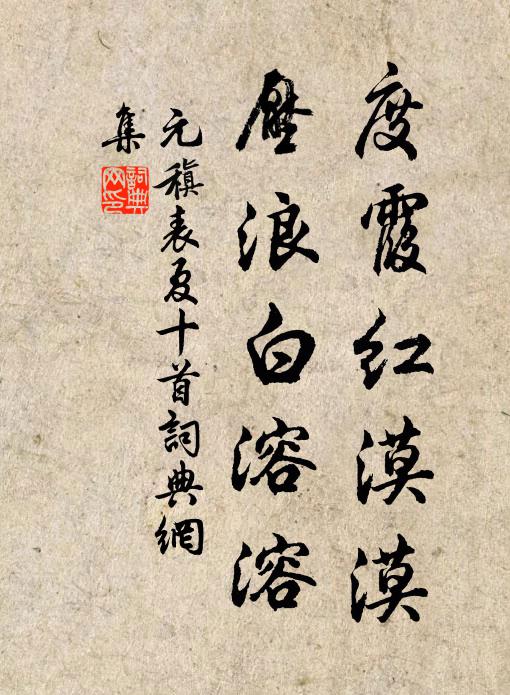 度霞红漠漠
壓浪白溶溶
元稹表夏十首詞典網
集
詞典
网印